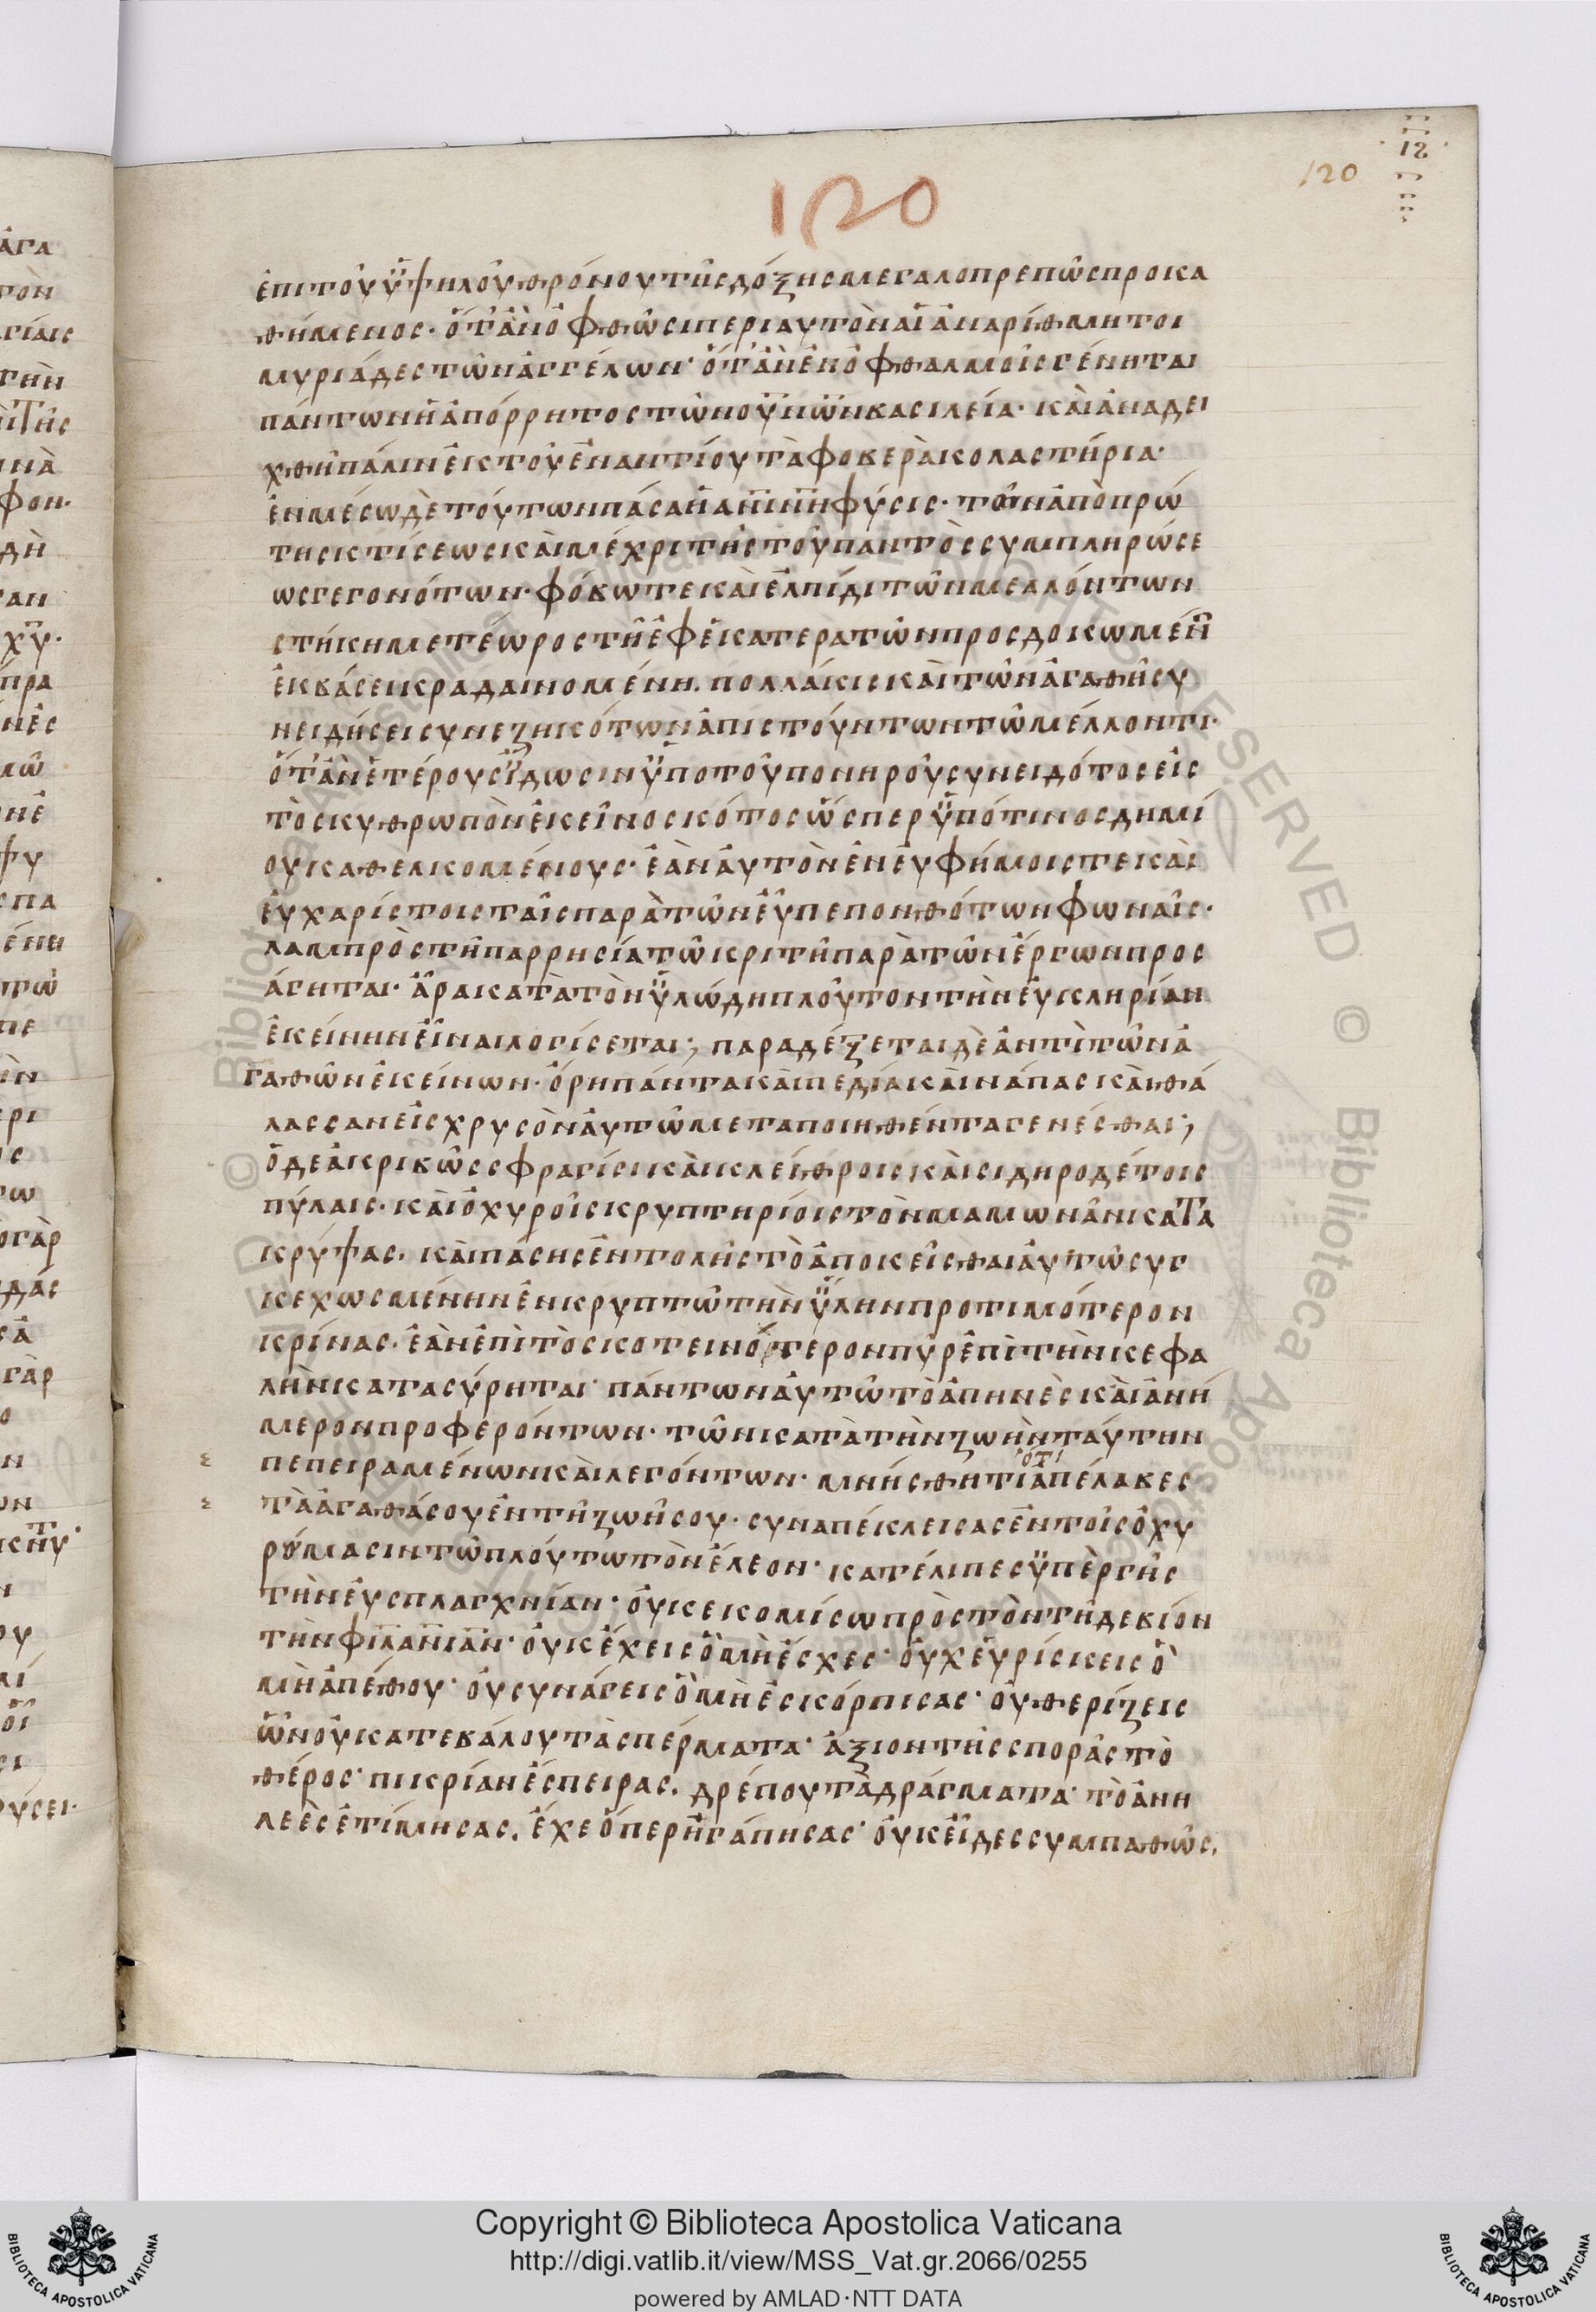 120
120
12
ἐπιτοῦὑψηλοῦθρόνουτῆςδόξηςμεγαλοπρεπῶςπροκα
θήμενος· ὅτἂνὀφθῶσιπεριαυτὸναἱἀναρίθμητοι
μυριάδεςτῶνἀγγέλων· ὅτἂνἐνὀφθαλμοῖςγένηται
πάντωνἡἀπόρρητοςτῶνοὐνῶνβασιλεία· καὶἀναδει
χθῇπάλινἐκτοῦἐναντίουτὰφοβερὰκολαστήρια·
ἐνμέσωδὲτούτωνπᾶσαἡἀνίνηφύσις· τῶνἀπὸπρώ
τηςκτίσεωςκαὶμέχριτῆςτοῦπαντὸςσυμπληρώσε
ωςγεγονότων· φόβωτεκαὶἐλπίδιτῶνμελλόντων
στήκημετέωροςτῇἐφἑκατερατῶνπροσδοκωμέν
ἐκβάσεικραδαινομένη. πολλάκιςκαὶτῶνἀγαθῇσυ
νειδήσεισυνεζηκότωνἀπιστούντωντῶμέλλοντι·
ὅτἂνἑτέρουςἴδωσινὑποτοῦπονηροῦσυνειδότοςεἰς
τὸσκυθρωπὸνἐκεῖνοσκότοςὥσπερὑπότινοςδημί
ουκαθελκομένους· ἐὰναὐτὸνἐνεὐφήμοιςτεκαὶ
εὐχαρίστοιςταῖςπαρὰτῶνεὐπεπονθότωνφωναῖς·
λαμπρὸςτῇπαρρησίατῶκριτῇπαρὰτῶνἔργωνπροσ
άγηται· ἆρακατὰτὸνὑλώδηπλοῦτοντὴνεὐκληρίαν
ἐκείνηνεἶναιλογίσεται; παραδέξεταιδὲἀντὶτῶνἀ
γαθῶνἐκείνων· ὄρηπάντακαὶπεδίακαὶνάπαςκαὶθά
λασσανεἰςχρυσὸναὐτῶμεταποιηθένταγενέσθαι;
ὅδεἀκριβῶςσφραγίσικαὶκλείθροιςκαὶσιδηροδέτοις
πύλαις· καὶὀχυροῖςκρυπτηρίοιςτὸνμαμωνᾶνκατα
κρύψας, καὶπάσηςἐντολῆςτὸἀποκεῖσθαιἀυτῶσυγ
κεχωσμένηνἐνκρυπτῶτὴνὕληνπροτιμότερον
κρίνας· ἐὰνἐπὶτὸσκοτεινότερονπῦρἐπὶτὴνκεφα
λὴνκατασύρηται· πάντωναὐτῶτὸἀπηνὲςκαὶἀνή
μερονπροφερόντων· τῶνκατὰτὴνζωὴνταύτην
πεπειραμένωνκαὶλεγόντων· μνήσθητιὅτιἀπέλαβες
τὰἀγαθάσουἐντῇζωῇσου· συναπέκλεισαςἐντοῖςὀχυ
ρώμασιντῶπλούτωτὸνἔλεον· κατέλιπεςὑπὲργῆς
τὴνεὐσπλαγχνίαν· οὐκεκομίσωπρὸςτὸντῇδεβίον
τὴνφιλανίαν· οὐκἔχειςὃμὴἔσχες· οὐχεὑρίσκειςὃ
μὴἀπέθου· οὐσυνάγειςὃμὴἐσκόρπισας· οὐθερίζεις
ὧνοὐκατεβάλουτὰσπέρματα· ἄξιοντῆςσπορᾶςτὸ
θέρος· πικρίανἔσπειρας, δρέπουτὰδράγματα· τὸἀνη
λεὲςἐτίμησας, ἔχεὅπερἠγάπησας· οὐκεἶδεςσυμπαθῶς,
Copyright © Biblioteca Apostolica Vaticana
http://digi.vatlib.it/view/MSS_Vat.gr.2066/0255
powered by AMLAD·NTT DATA